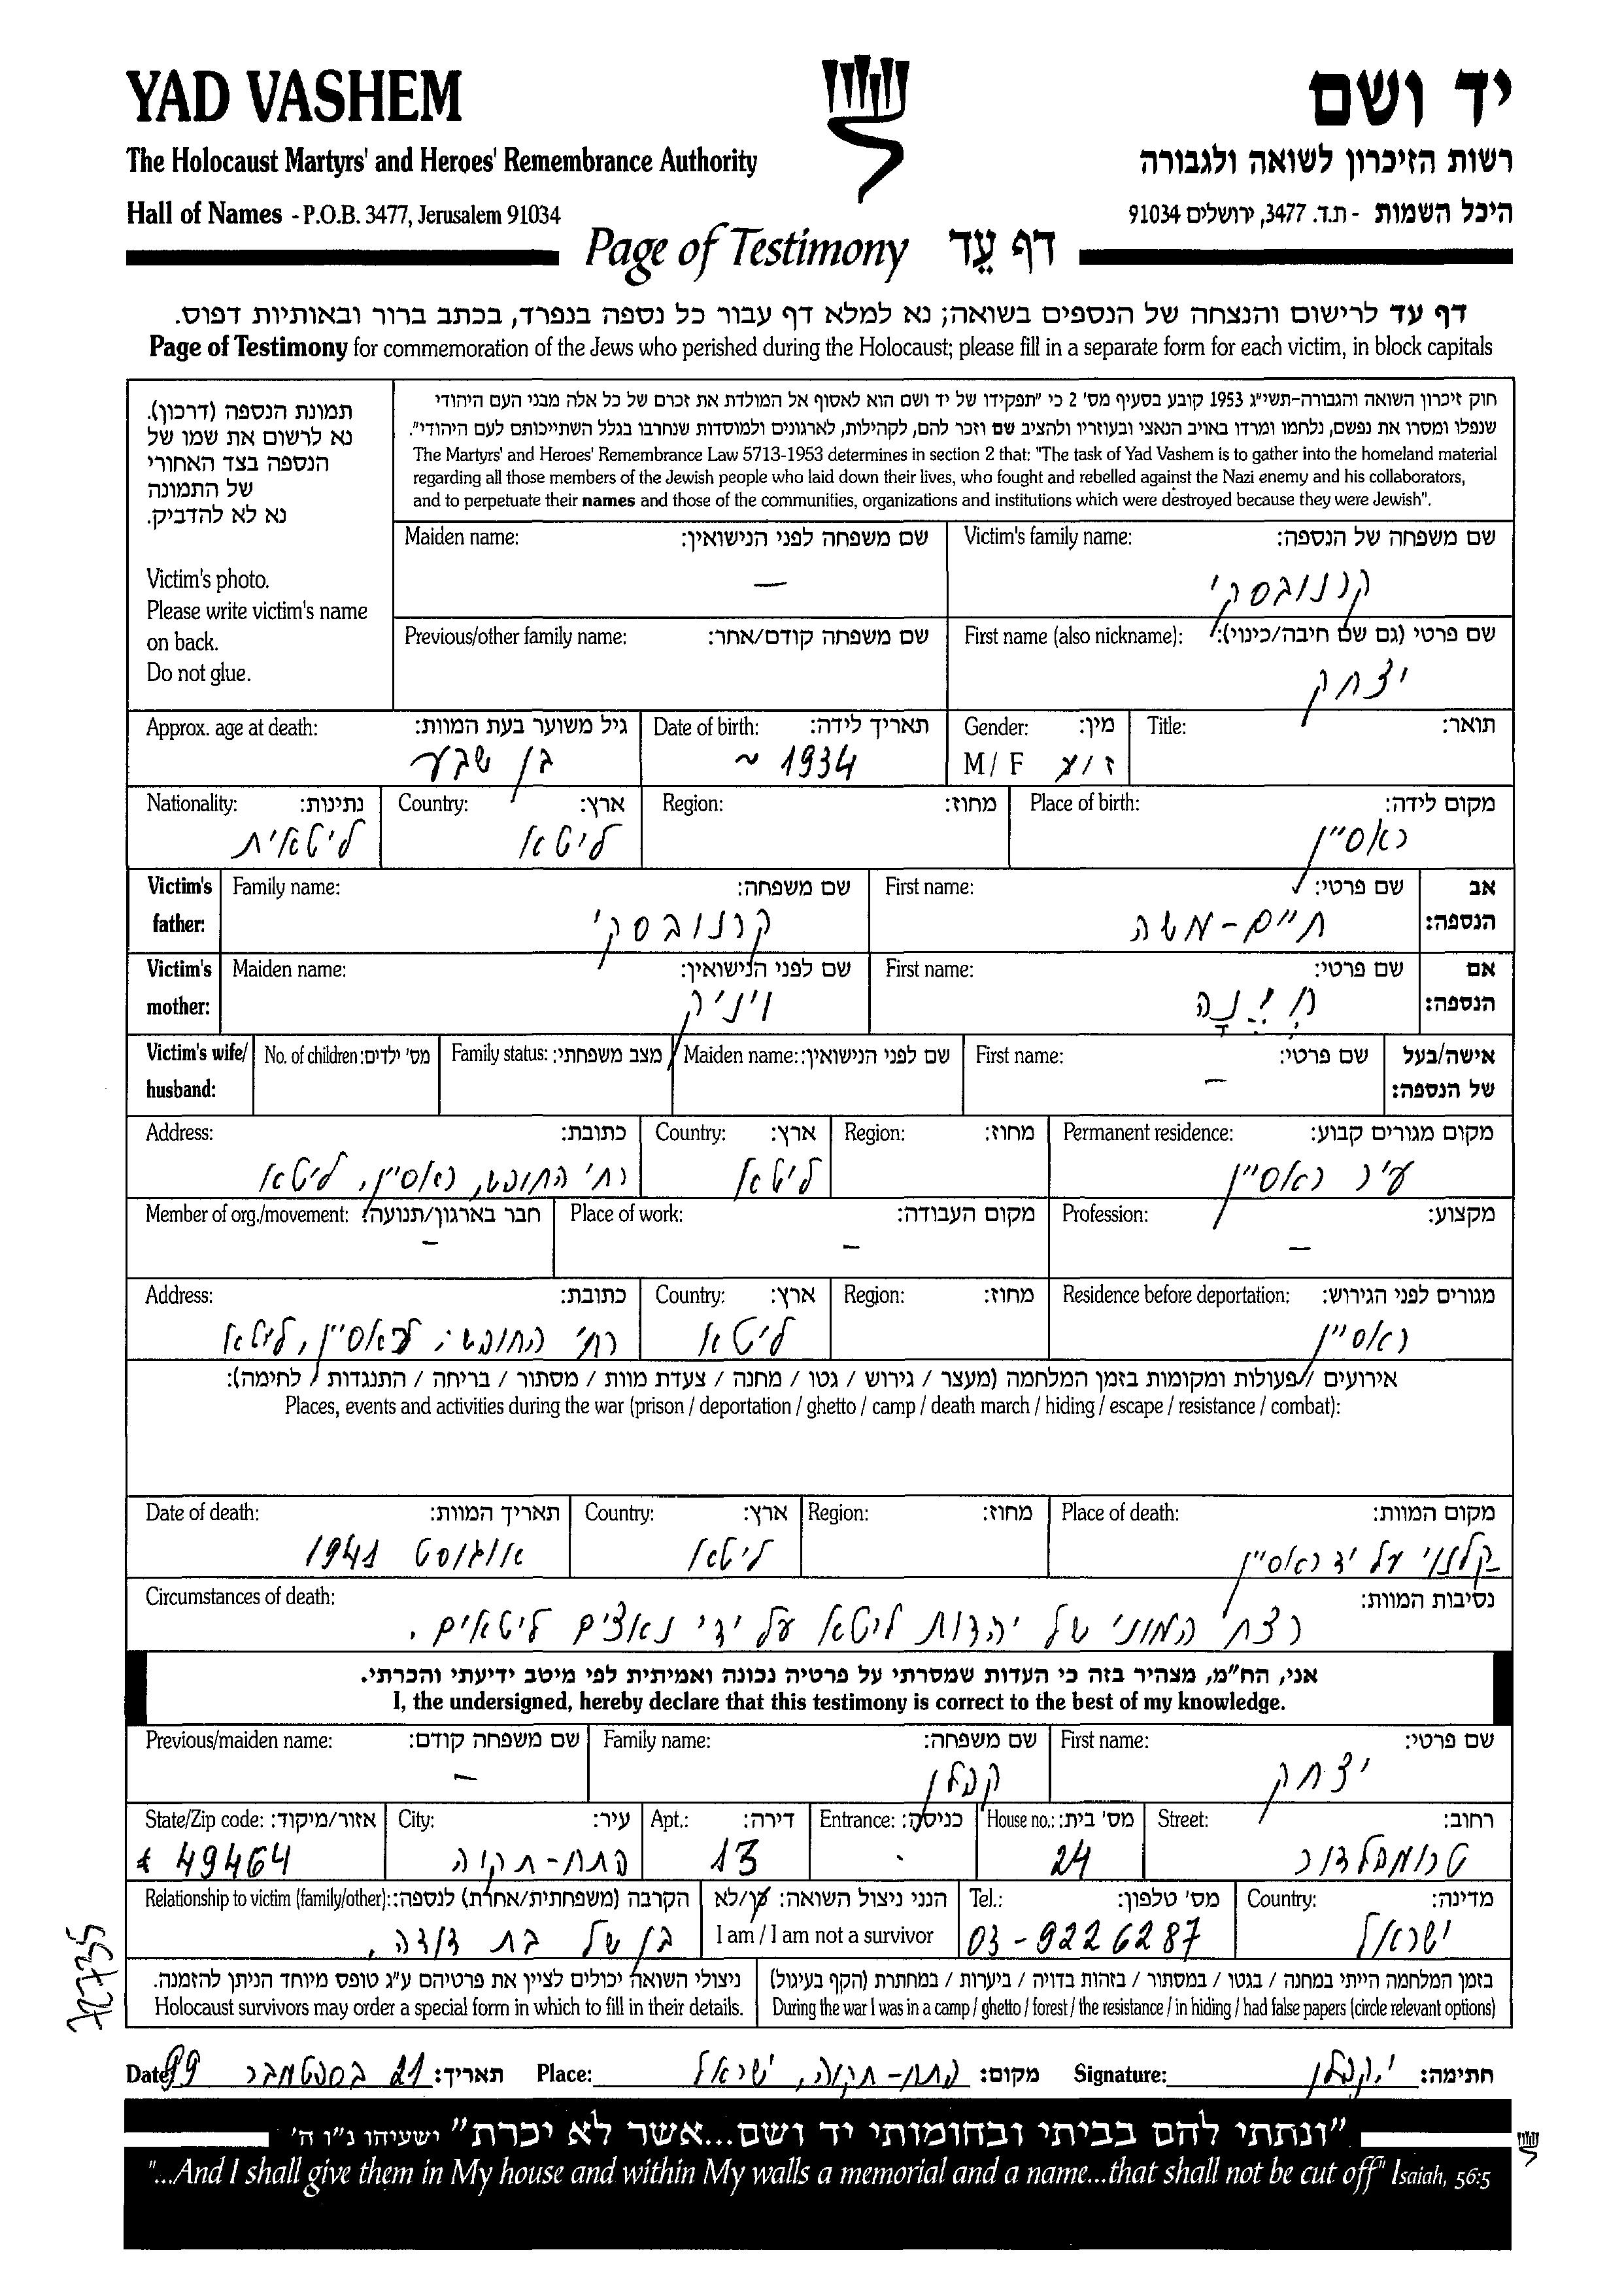 YAD VASHEM
יד ושם
The Holocaust Martyrs' and Heroes' Remembrance Authority
רשות הזיכרון לשואה ולגבורה
Hall of Names - P.O.B. 3477, Jerusalem 91034
היכל השמות - ת.ד. 3477, ירושלים 91034
Page of Testimony דף עֵד
דף עד לרישום והנצחה של הנספים בשואה; נא למלא דף עבור כל נספה בנפרד, בכתב ברור ובאותיות דפוס.
Page of Testimony for commemoration of the Jews who perished during the Holocaust; please fill in a separate form for each victim, in block capitals
תמונת הנספה (דרכון).
נא לרשום את שמו של
הנספה בצד האחורי
של התמונה
נא לא להדביק.
Victim's photo.
Please write victim's name
on back.
Do not glue.
חוק זיכרון השואה והגבורה-תשי"ג 1953 קובע בסעיף מס' 2 כי "תפקידו של יד ושם הוא לאסוף אל המולדת את זכרם של כל אלה מבני העם היהודי
שנפלו ומסרו את נפשם, נלחמו ומרדו באויב הנאצי ובעוזריו ולהציב שם וזכר להם, לקהילות, לארגונים ולמוסדות שנחרבו בגלל השתייכותם לעם היהודי".
The Martyrs' and Heroes' Remembrance Law 5713-1953 determines in section 2 that: "The task of Yad Vashem is to gather into the homeland material
regarding all those members of the Jewish people who laid down their lives, who fought and rebelled against the Nazi enemy and his collaborators,
and to perpetuate their names and those of the communities, organizations and institutions which were destroyed because they were Jewish".
Victim's family name: שם משפחה של הנספה:
קרנובסקי
Maiden name: שם משפחה לפני הנישואין:
–
First name (also nickname): שם פרטי (גם שם חיבה/כינוי):
יצחק
Previous/other family name: שם משפחה קודם/אחר:
Title: תואר:
Gender: מין:
M / F ז / נ
Date of birth: תאריך לידה:
~ 1934
Approx. age at death: גיל משוער בעת המוות:
בן שבע
Place of birth: מקום לידה:
ראסיין
Region: מחוז:
Country: ארץ:
ליטא
Nationality: נתינות:
ליטאית
Victim's father: אב הנספה:
First name: שם פרטי:
חיים-משה
Family name: שם משפחה:
קרנובסקי
Victim's mother: אם הנספה:
First name: שם פרטי:
Maiden name: שם לפני הנישואין:
ויניק
Victim's wife/ husband: אישה/בעל של הנספה:
First name: שם פרטי:
–
Maiden name: שם לפני הנישואין:
Family status: מצב משפחתי:
No. of children: מס' ילדים:
Permanent residence: מקום מגורים קבוע:
עיר ראסיין
Region: מחוז:
Country: ארץ:
ליטא
Address: כתובת:
רח' החופש, ראסיין, ליטא
Profession: מקצוע:
–
Place of work: מקום העבודה:
–
Member of org./movement: חבר בארגון/תנועה:
–
Residence before deportation: מגורים לפני הגירוש:
ראסיין
Region: מחוז:
Country: ארץ:
ליטא
Address: כתובת:
רח' החופש, ראסיין, ליטא
אירועים / פעולות ומקומות בזמן המלחמה (מעצר / גירוש / גטו / מחנה / צעדת מוות / מסתור / בריחה / התנגדות / לחימה):
Places, events and activities during the war (prison / deportation / ghetto / camp / death march / hiding / escape / resistance / combat):
Place of death: מקום המוות:
על יד ראסיין
Region: מחוז:
Country: ארץ:
ליטא
Date of death: תאריך המוות:
אוגוסט 1941
Circumstances of death: נסיבות המוות:
רצח המוני של יהדות ליטא על ידי נאצים ליטאים.
אני, הח"מ, מצהיר בזה כי העדות שמסרתי על פרטיה נכונה ואמיתית לפי מיטב ידיעתי והכרתי.
I, the undersigned, hereby declare that this testimony is correct to the best of my knowledge.
First name: שם פרטי:
יצחק
Family name: שם משפחה:
קפלן
Previous/maiden name: שם משפחה קודם:
–
Street: רחוב:
טרומפלדור
House no.: מס' בית:
24
Entrance: כניסה:
Apt.: דירה:
13
City: עיר:
פתח-תקוה
State/Zip code: אזור/מיקוד:
49464
Country: מדינה:
ישראל
Tel.: מס' טלפון:
03-9226287
הנני ניצול השואה: כן/לא
I am / I am not a survivor
Relationship to victim (family/other): הקרבה (משפחתית/אחרת) לנספה:
בן של בת דודה.
בזמן המלחמה הייתי במחנה / בגטו / במסתור / בזהות בדויה / ביערות / במחתרת (הקף בעיגול)
During the war I was in a camp / ghetto / forest / the resistance / in hiding / had false papers (circle relevant options)
ניצולי השואה יכולים לציין את פרטיהם ע"ג טופס מיוחד הניתן להזמנה.
Holocaust survivors may order a special form in which to fill in their details.
Signature: י. קפלן חתימה:
Place: פתח-תקוה, ישראל מקום:
Date: 21 בספטמבר 99 תאריך:
"ונתתי להם בביתי ובחומותי יד ושם...אשר לא יכרת" ישעיהו נ"ו ה'
"...And I shall give them in My house and within My walls a memorial and a name...that shall not be cut off" Isaiah, 56:5